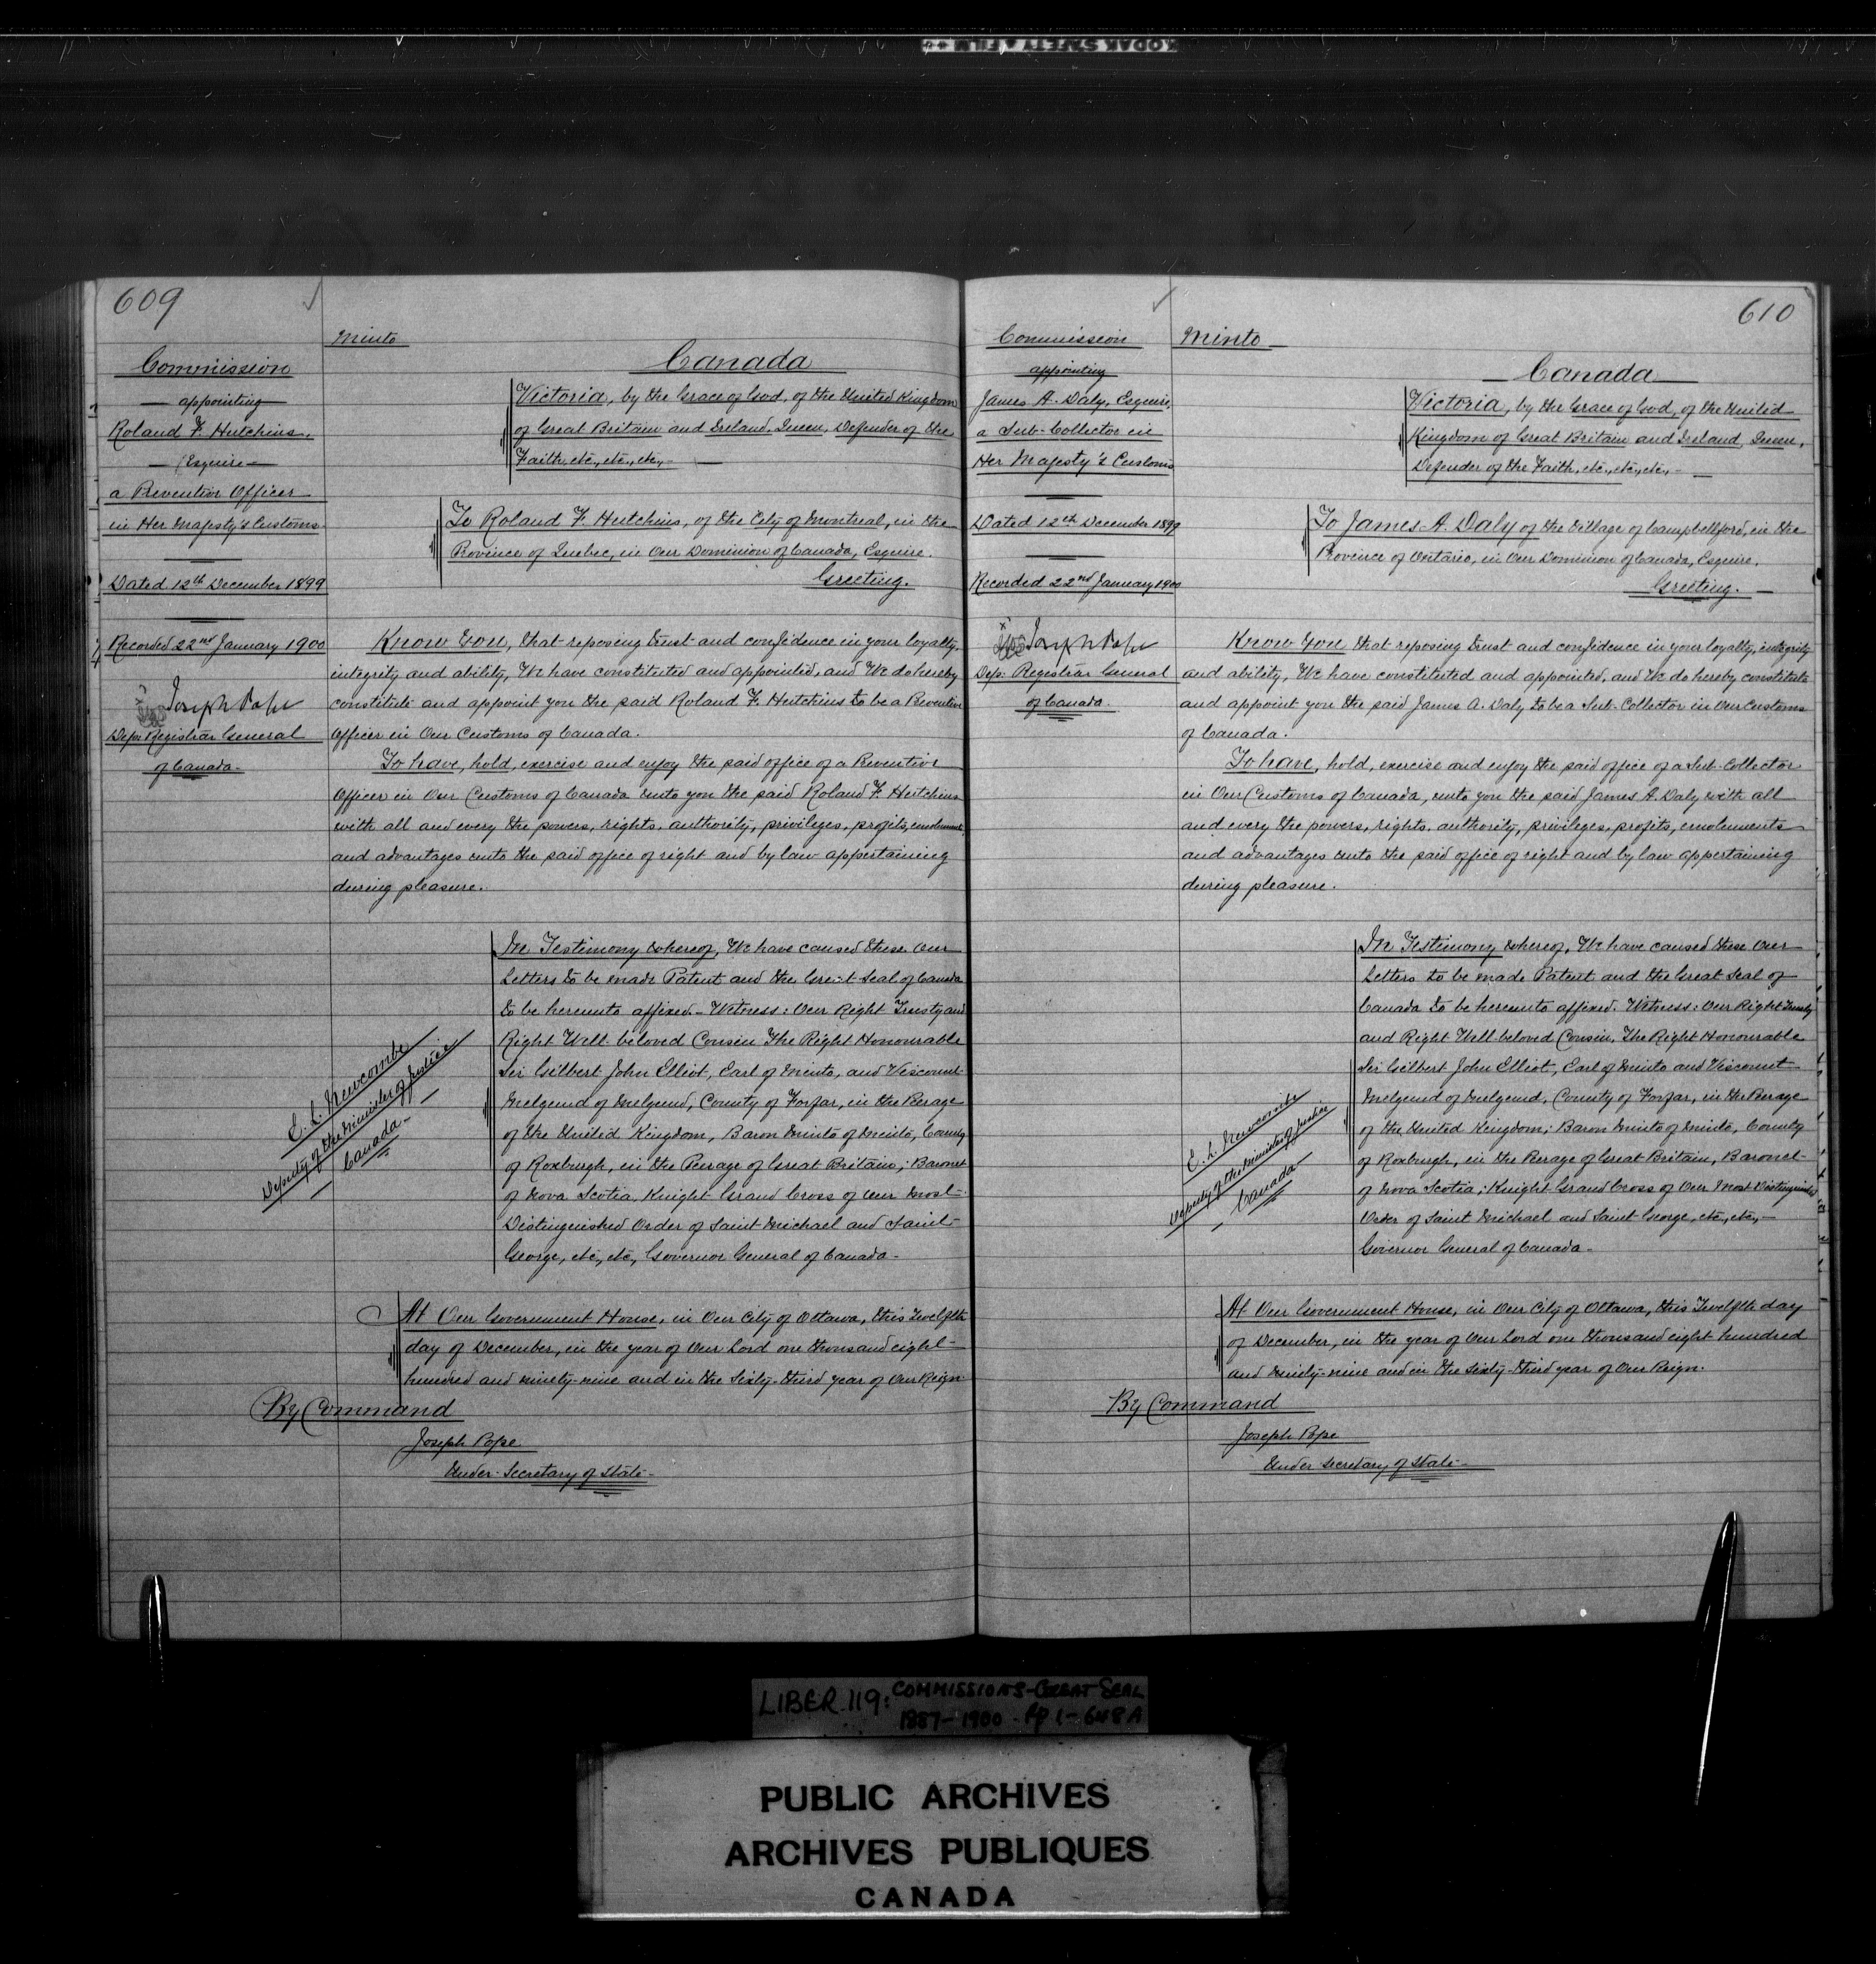 KODAK SAFETY FILM
609
Commission
appointing
Roland F. Hutchins,
Esquire
a Preventive Officer
in Her Majesty's Customs
Dated 12th December 1899
Recorded 22nd January 1900
Joseph Pope
Depy. Registrar General
of Canada.
Minto
Canada
Victoria, by the Grace of God, of the United Kingdom
of Great Britain and Ireland, Queen, Defender of the
Faith, etc., etc., etc.,
To Roland F. Hutchins, of the City of Montreal, in the
Province of Quebec, in Our Dominion of Canada, Esquire.
Greeting.
Know You, that reposing trust and confidence in your loyalty,
integrity and ability, We have constituted and appointed, and We do hereby
constitute and appoint you the said Roland F. Hutchins to be a Preventive
Officer in Our Customs of Canada.
To have, hold, exercise and enjoy the said office of a Preventive
Officer in Our Customs of Canada unto you the said Roland F. Hutchins
with all and every the powers, rights, authority, privileges, profits, emoluments,
and advantages unto the said office of right and by law appertaining
during pleasure.
In Testimony whereof, We have caused these Our
Letters to be made Patent and the Great Seal of Canada
to be hereunto affixed. Witness: Our Right Trusty and
Right Well-beloved Cousin The Right Honourable
Sir Gilbert John Elliot, Earl of Minto, and Viscount
Melgund of Melgund, County of Forfar, in the Peerage
of the United Kingdom, Baron Minto of Minto, County
of Roxburgh, in the Peerage of Great Britain; Baronet
of Nova Scotia, Knight Grand Cross of Our Most
Distinguished Order of Saint Michael and Saint
George, etc., etc., Governor General of Canada.
E. L. Newcombe
Deputy of the Minister of Justice
Canada.
At Our Government House, in Our City of Ottawa, this Twelfth
day of December, in the year of Our Lord one thousand eight
hundred and ninety-nine and in the Sixty-third year of Our Reign.
By Command
Joseph Pope
Under-Secretary of State.
610
Commission
appointing
James A. Daly, Esquire,
a Sub-Collector in
Her Majesty's Customs
Dated 12th December 1899
Recorded 22nd January 1900
Joseph Pope
Dep: Registrar General
of Canada.
Minto
Canada
Victoria, by the Grace of God, of the United
Kingdom of Great Britain and Ireland, Queen,
Defender of the Faith, etc., etc., etc.,
To James A. Daly of the Village of Campbellford, in the
Province of Ontario, in Our Dominion of Canada, Esquire.
Greeting.
Know You that reposing trust and confidence in your loyalty, integrity
and ability, We have constituted and appointed, and We do hereby constitute
and appoint you the said James A. Daly to be a Sub-Collector in Our Customs
of Canada.
To have, hold, exercise and enjoy the said office of a Sub-Collector
in Our Customs of Canada, unto you the said James A. Daly with all
and every the powers, rights, authority, privileges, profits, emoluments
and advantages unto the said office of right and by law appertaining
during pleasure.
In Testimony whereof, We have caused these Our
Letters to be made Patent and the Great Seal of
Canada to be hereunto affixed. Witness: Our Right Trusty
and Right Well-beloved Cousin, The Right Honourable
Sir Gilbert John Elliot, Earl of Minto and Viscount
Melgund of Melgund, County of Forfar, in the Peerage
of the United Kingdom; Baron Minto of Minto, County
of Roxburgh, in the Peerage of Great Britain, Baronet
of Nova Scotia; Knight Grand Cross of Our Most Distinguished
Order of Saint Michael and Saint George, etc., etc.,
Governor General of Canada.
E. L. Newcombe
Deputy of the Minister of Justice
Canada
At Our Government House, in Our City of Ottawa, this Twelfth day
of December, in the year of Our Lord one thousand eight hundred
and ninety-nine and in the Sixty-third year of Our Reign.
By Command
Joseph Pope
Under Secretary of State.
LIBER 119: COMMISSIONS-GREAT SEAL
1887-1900 - Pp 1-648A
PUBLIC ARCHIVES
ARCHIVES PUBLIQUES
CANADA